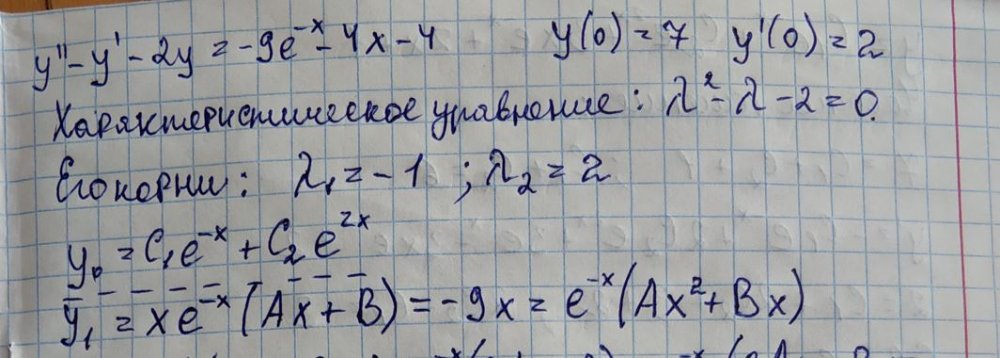 y'' - y' - 2y = -9e^{-x} - 4x - 4 y(0) = 7 y'(0) = 2
Характеристическое уравнение: λ² - λ - 2 = 0.
Его корни: λ₁ = -1 ; λ₂ = 2
y₀ = C₁e^{-x} + C₂e^{2x}
ȳ₁ = xe^{-x}(Ax + B) = -9x = e^{-x}(Ax² + Bx)